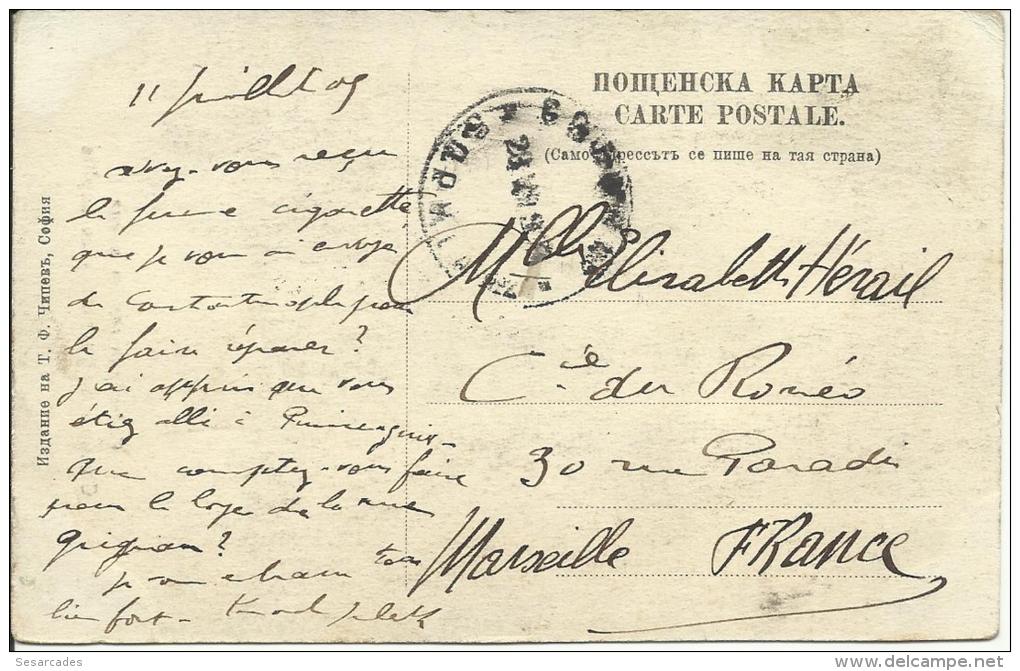 11 juillet 09
avez-vous reçu
le fume cigarette
que je vous ai envoyé
de Constantinople pour
le faire réparer?
j'ai appris que vous
étiez allé à
que comptez-vous faire
pour la loge de la rue
grignan?
je vous embrasse tous
bien fort-
ПОЩЕНСКА КАРТА
CARTE POSTALE.
(Само адрессътъ се пише на тая страна)
Mlle Elisabeth Hérail
Cie du Roméo
30 rue Paradis
Marseille FRANCE
Издание на Т. Ф. Чипевъ, София
Sesarcades
www.delcampe.net